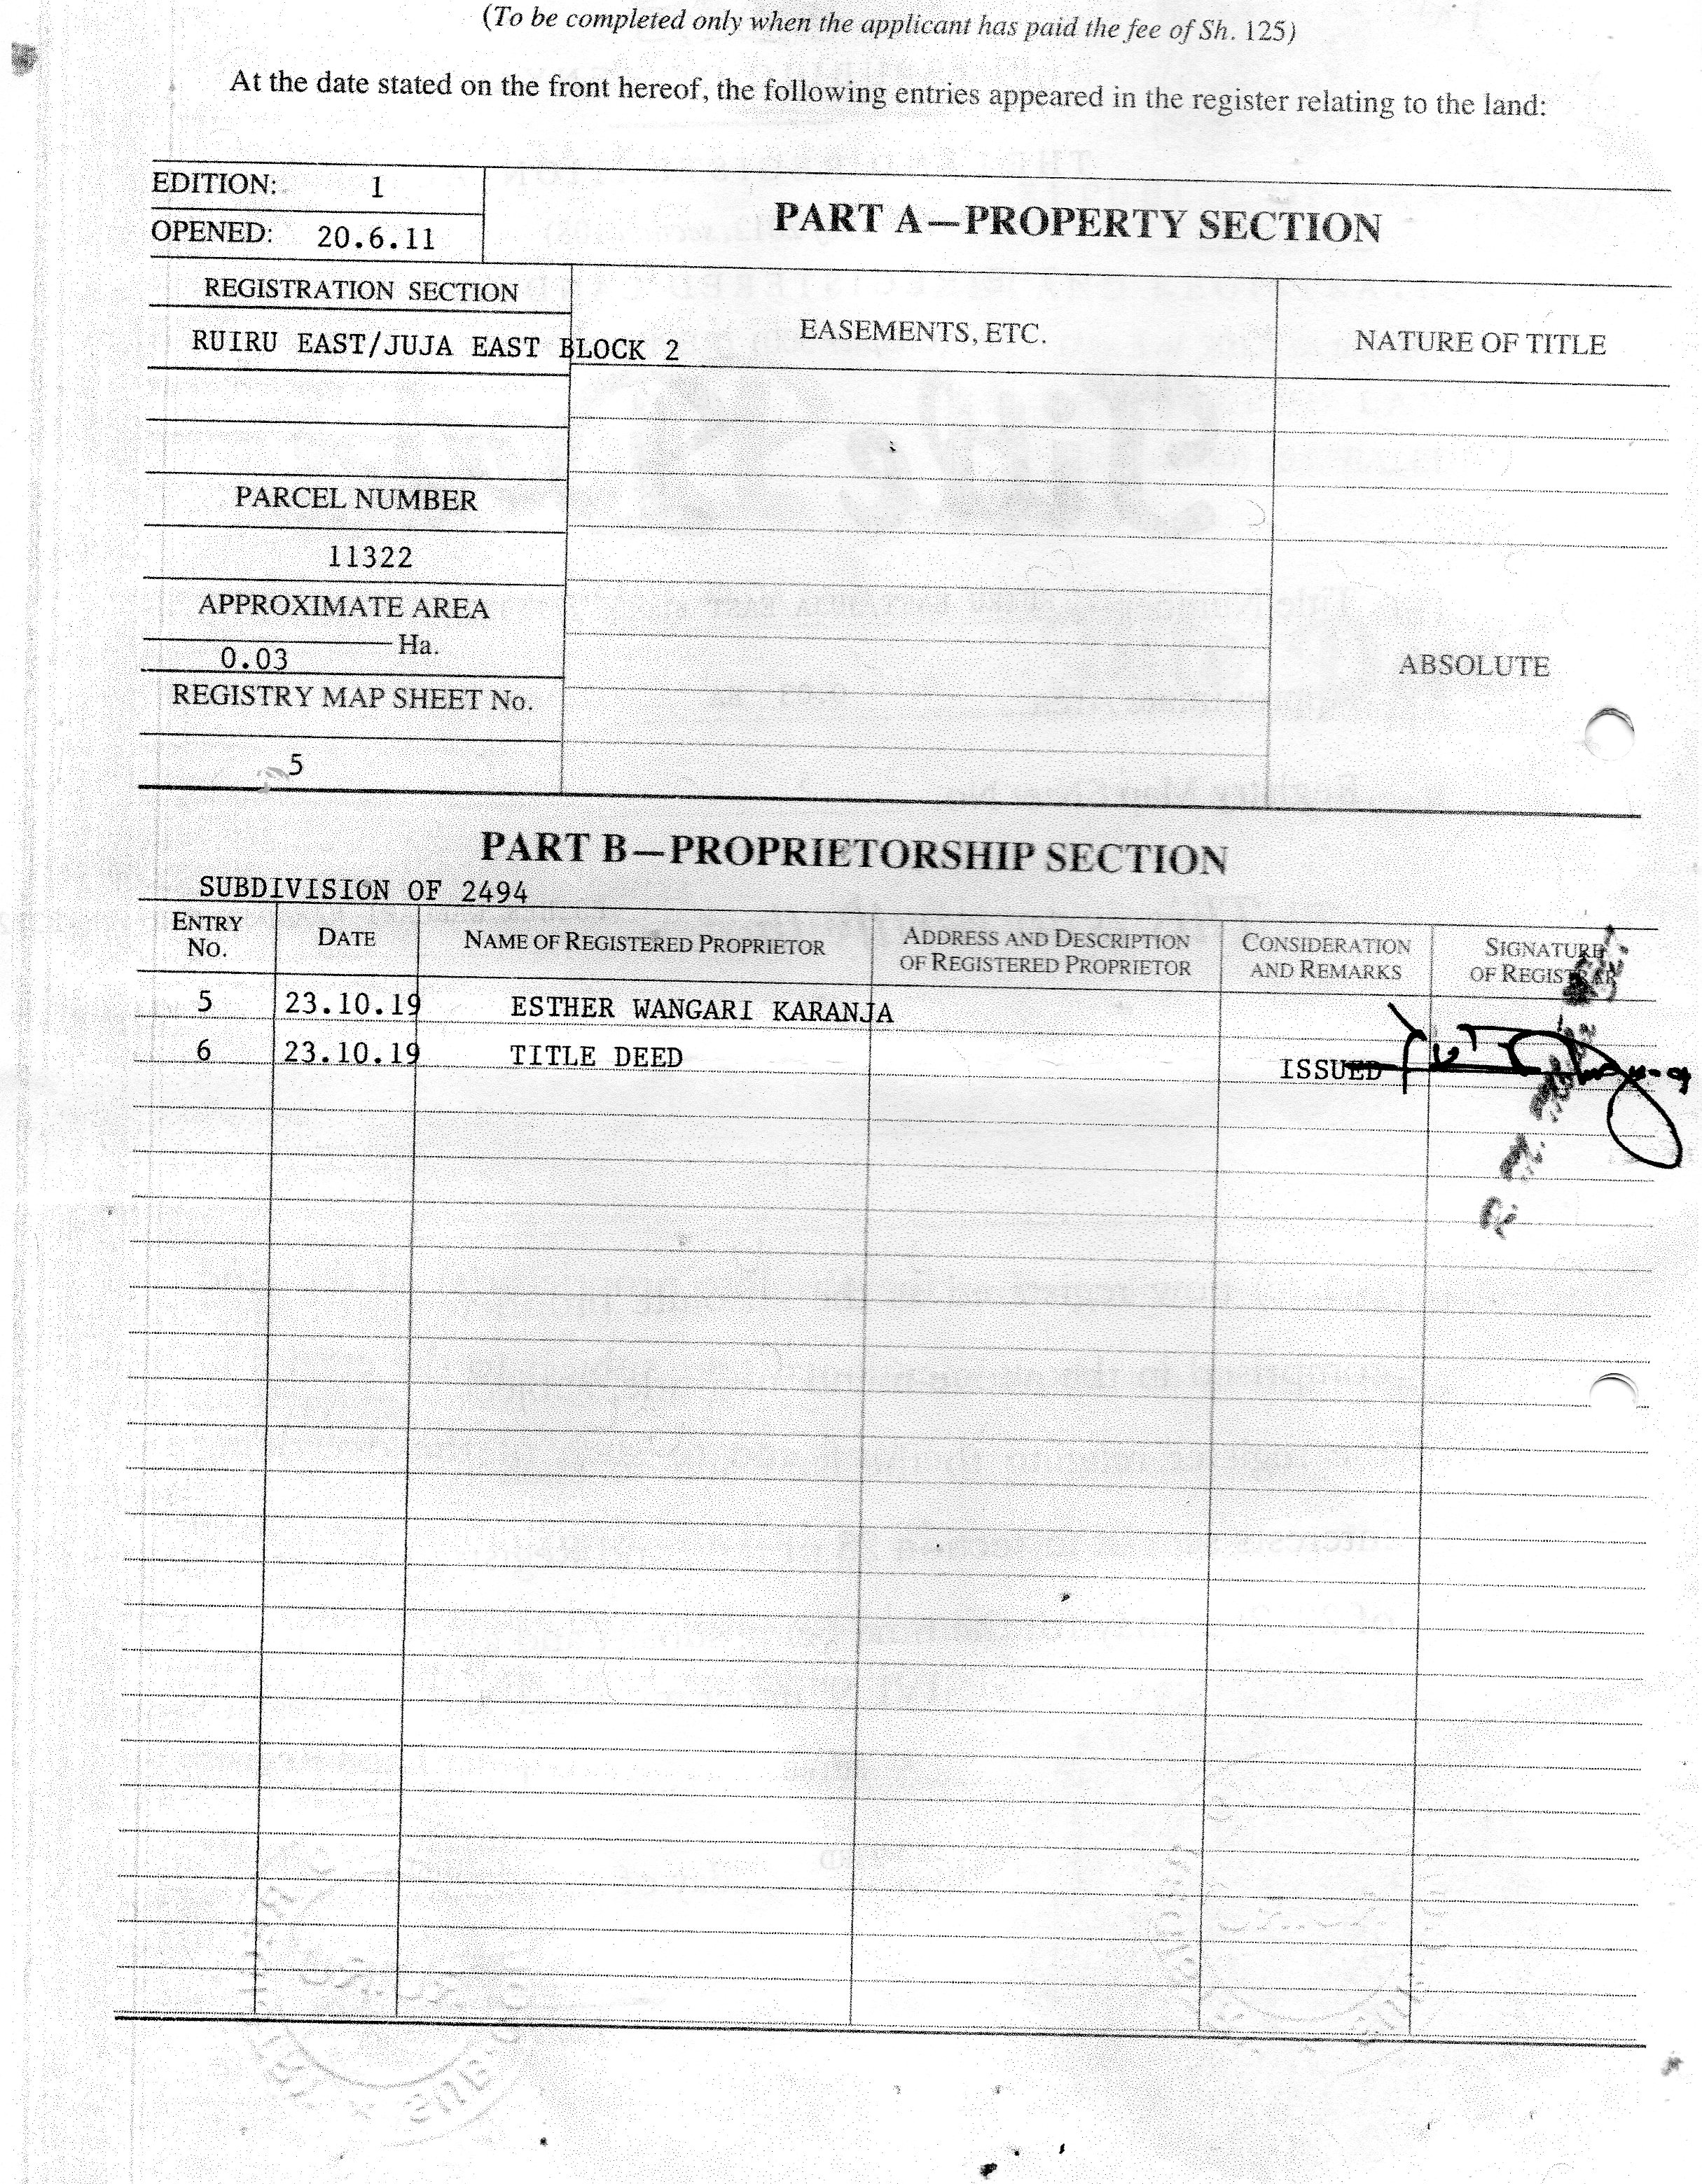 (To be completed only when the applicant has paid the fee of Sh. 125)
At the date stated on the front hereof, the following entries appeared in the register relating to the land:
EDITION: 1
OPENED: 20.6.11
PART A—PROPERTY SECTION
REGISTRATION SECTION
RUIRU EAST/JUJA EAST BLOCK 2
EASEMENTS, ETC.
NATURE OF TITLE
PARCEL NUMBER
11322
APPROXIMATE AREA
0.03 Ha.
REGISTRY MAP SHEET No.
5
ABSOLUTE
PART B—PROPRIETORSHIP SECTION
SUBDIVISION OF 2494
ENTRY No.
DATE
NAME OF REGISTERED PROPRIETOR
ADDRESS AND DESCRIPTION OF REGISTERED PROPRIETOR
CONSIDERATION AND REMARKS
SIGNATURE OF REGISTRAR
5 23.10.19 ESTHER WANGARI KARANJA
6 23.10.19 TITLE DEED ISSUED